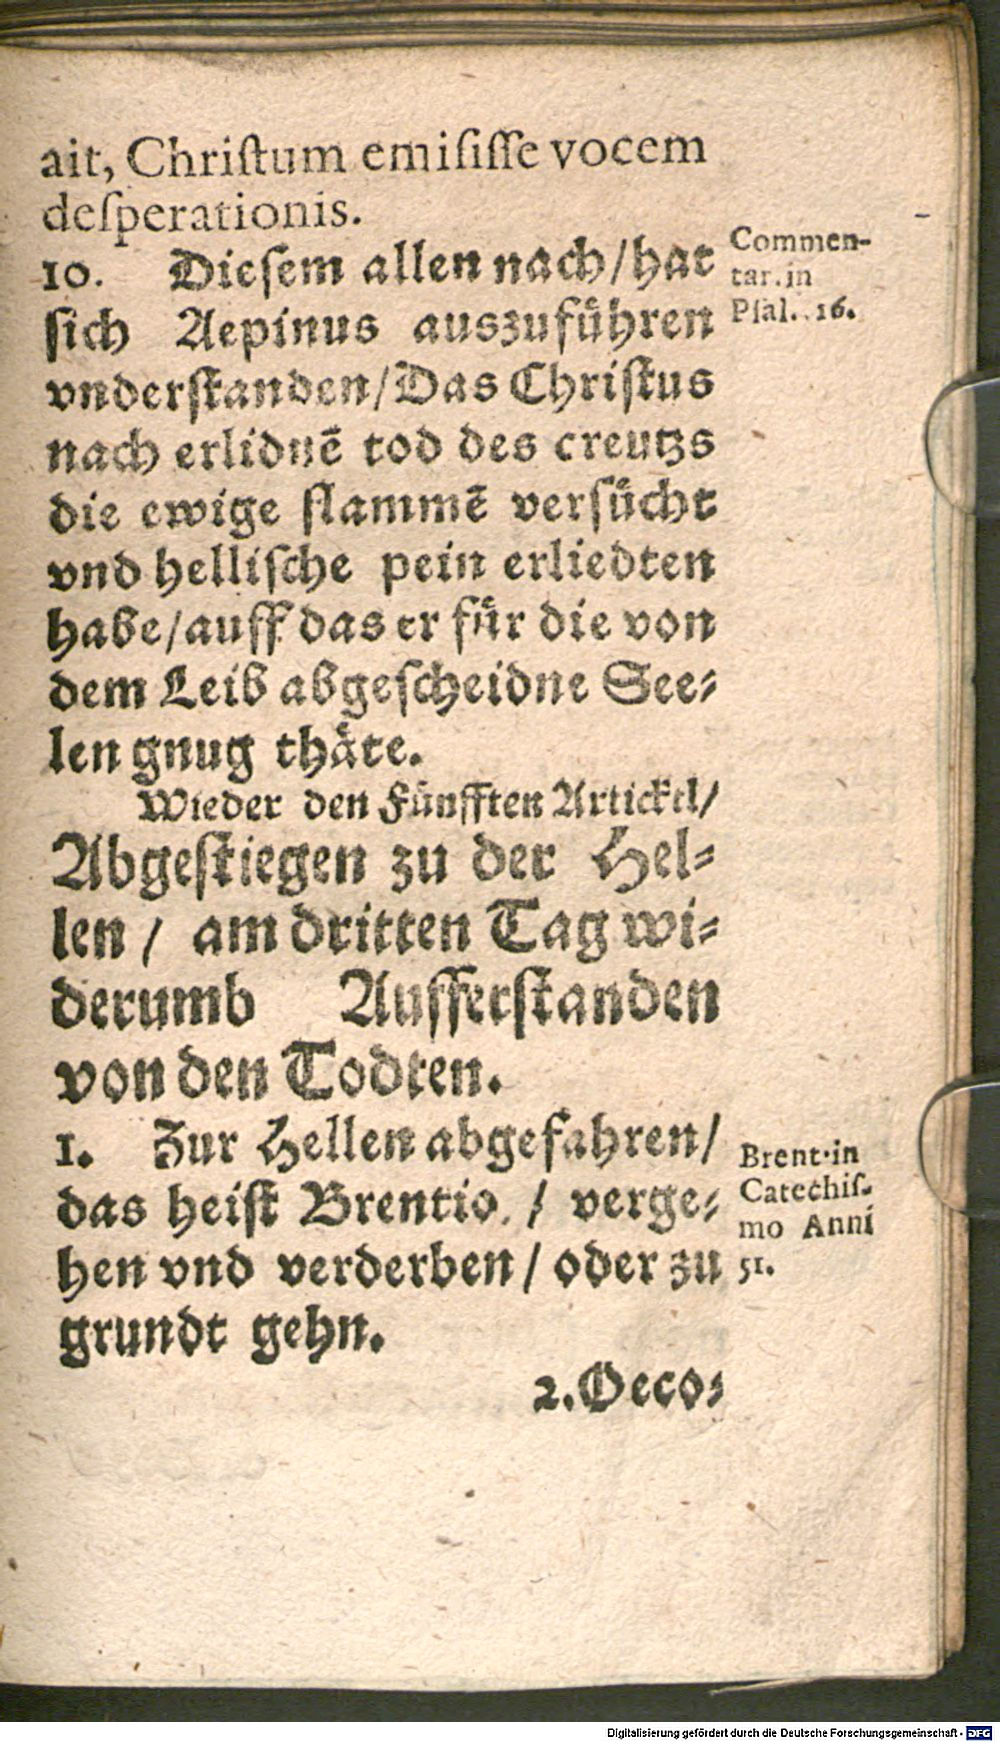 ait, Chriſtum emiſiſſe vocem
deſperationis.
10. Dieſem allen nach/hat
ſich Aepinus auszufuͤhren
vnderſtanden/Das Chriſtus
nach erlidnē tod des creutzs
die ewige flammē verſuͤcht
vnd helliſche pein erliedten
habe/auff das er fuͤr die von
dem Leib abgeſcheidne See⸗
len gnug thaͤte.
Commen-
tar. in
Pſal. 16.
Wieder den Fuͤnfften Artickel/
Abgeſtiegen zu der Hel⸗
len / am dritten Tag wi⸗
derumb Aufferſtanden
von den Todten.
1. Zur Hellen abgefahren/
das heiſt Brentio / verge⸗
hen vnd verderben / oder zu
grundt gehn.
Brent. in
Catechiſ-
mo Anni
51.
2. Oeco⸗
Digitalisierung gefördert durch die Deutsche Forschungsgemeinschaft - DFG